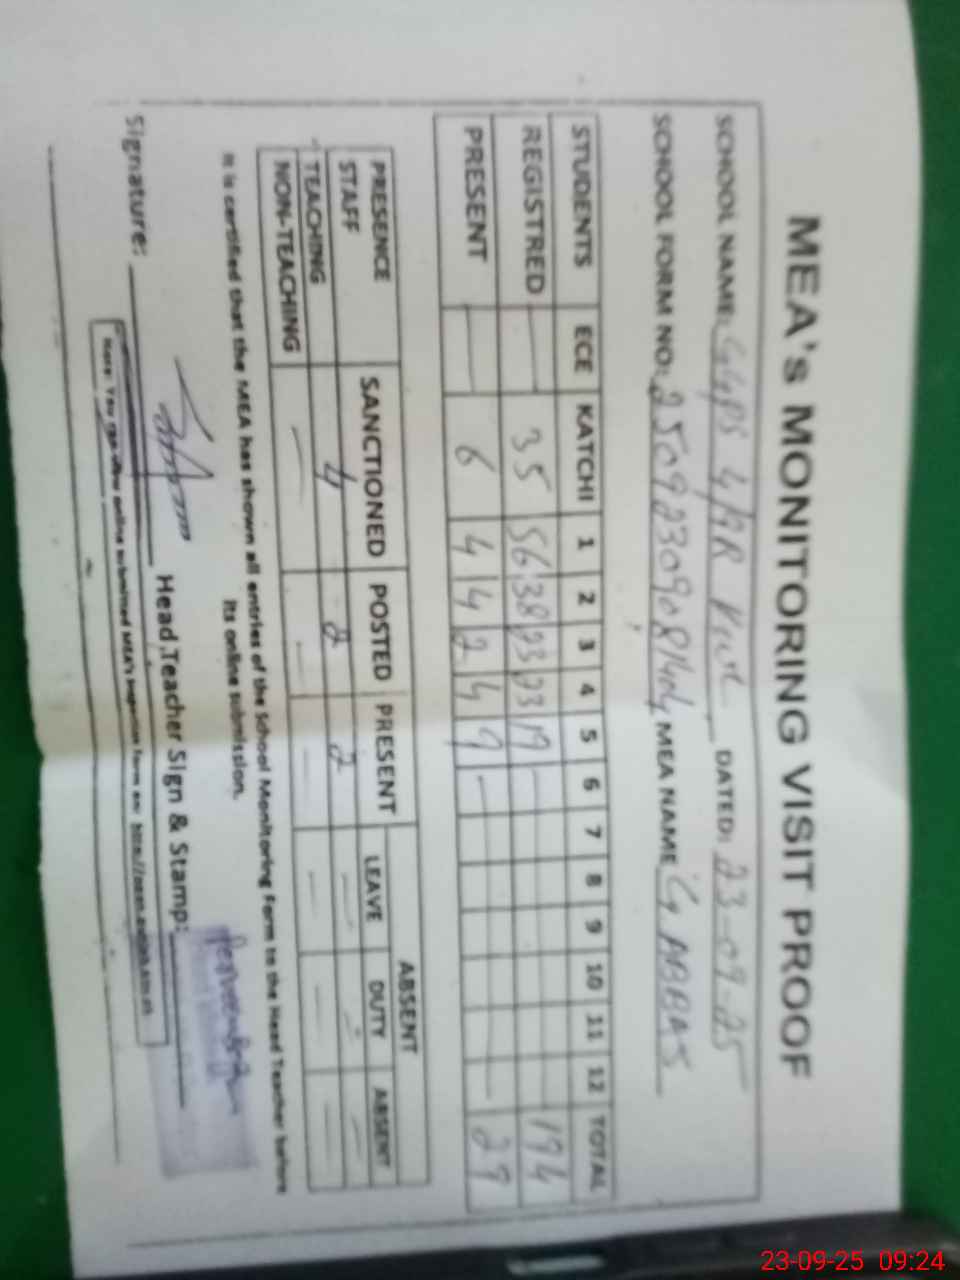 MEA's MONITORING VISIT PROOF
SCHOOL NAME: GGPS 4/9R DATED: 23-09-25
SCHOOL FORM NO: MEA NAME G. ABBAS
STUDENTS ECE KATCHI 1 2 3 4 5 6 7 8 9 10 11 12 TOTAL
REGISTRED — 35 56 38 23 23 19 — 194
PRESENT — 6 4 4 2 4 9 — 29
PRESENCE SANCTIONED POSTED PRESENT ABSENT
STAFF LEAVE DUTY ABSENT
TEACHING 4 2 2 — — —
NON-TEACHING — — — — — —
It is certified that the MEA has shown all entries of the School Monitoring Form to the Head Teacher before
its online submission.
Signature: Head Teacher Sign & Stamp:
Note: You can view online submitted MEA's Inspection form on:
23-09-25 09:24